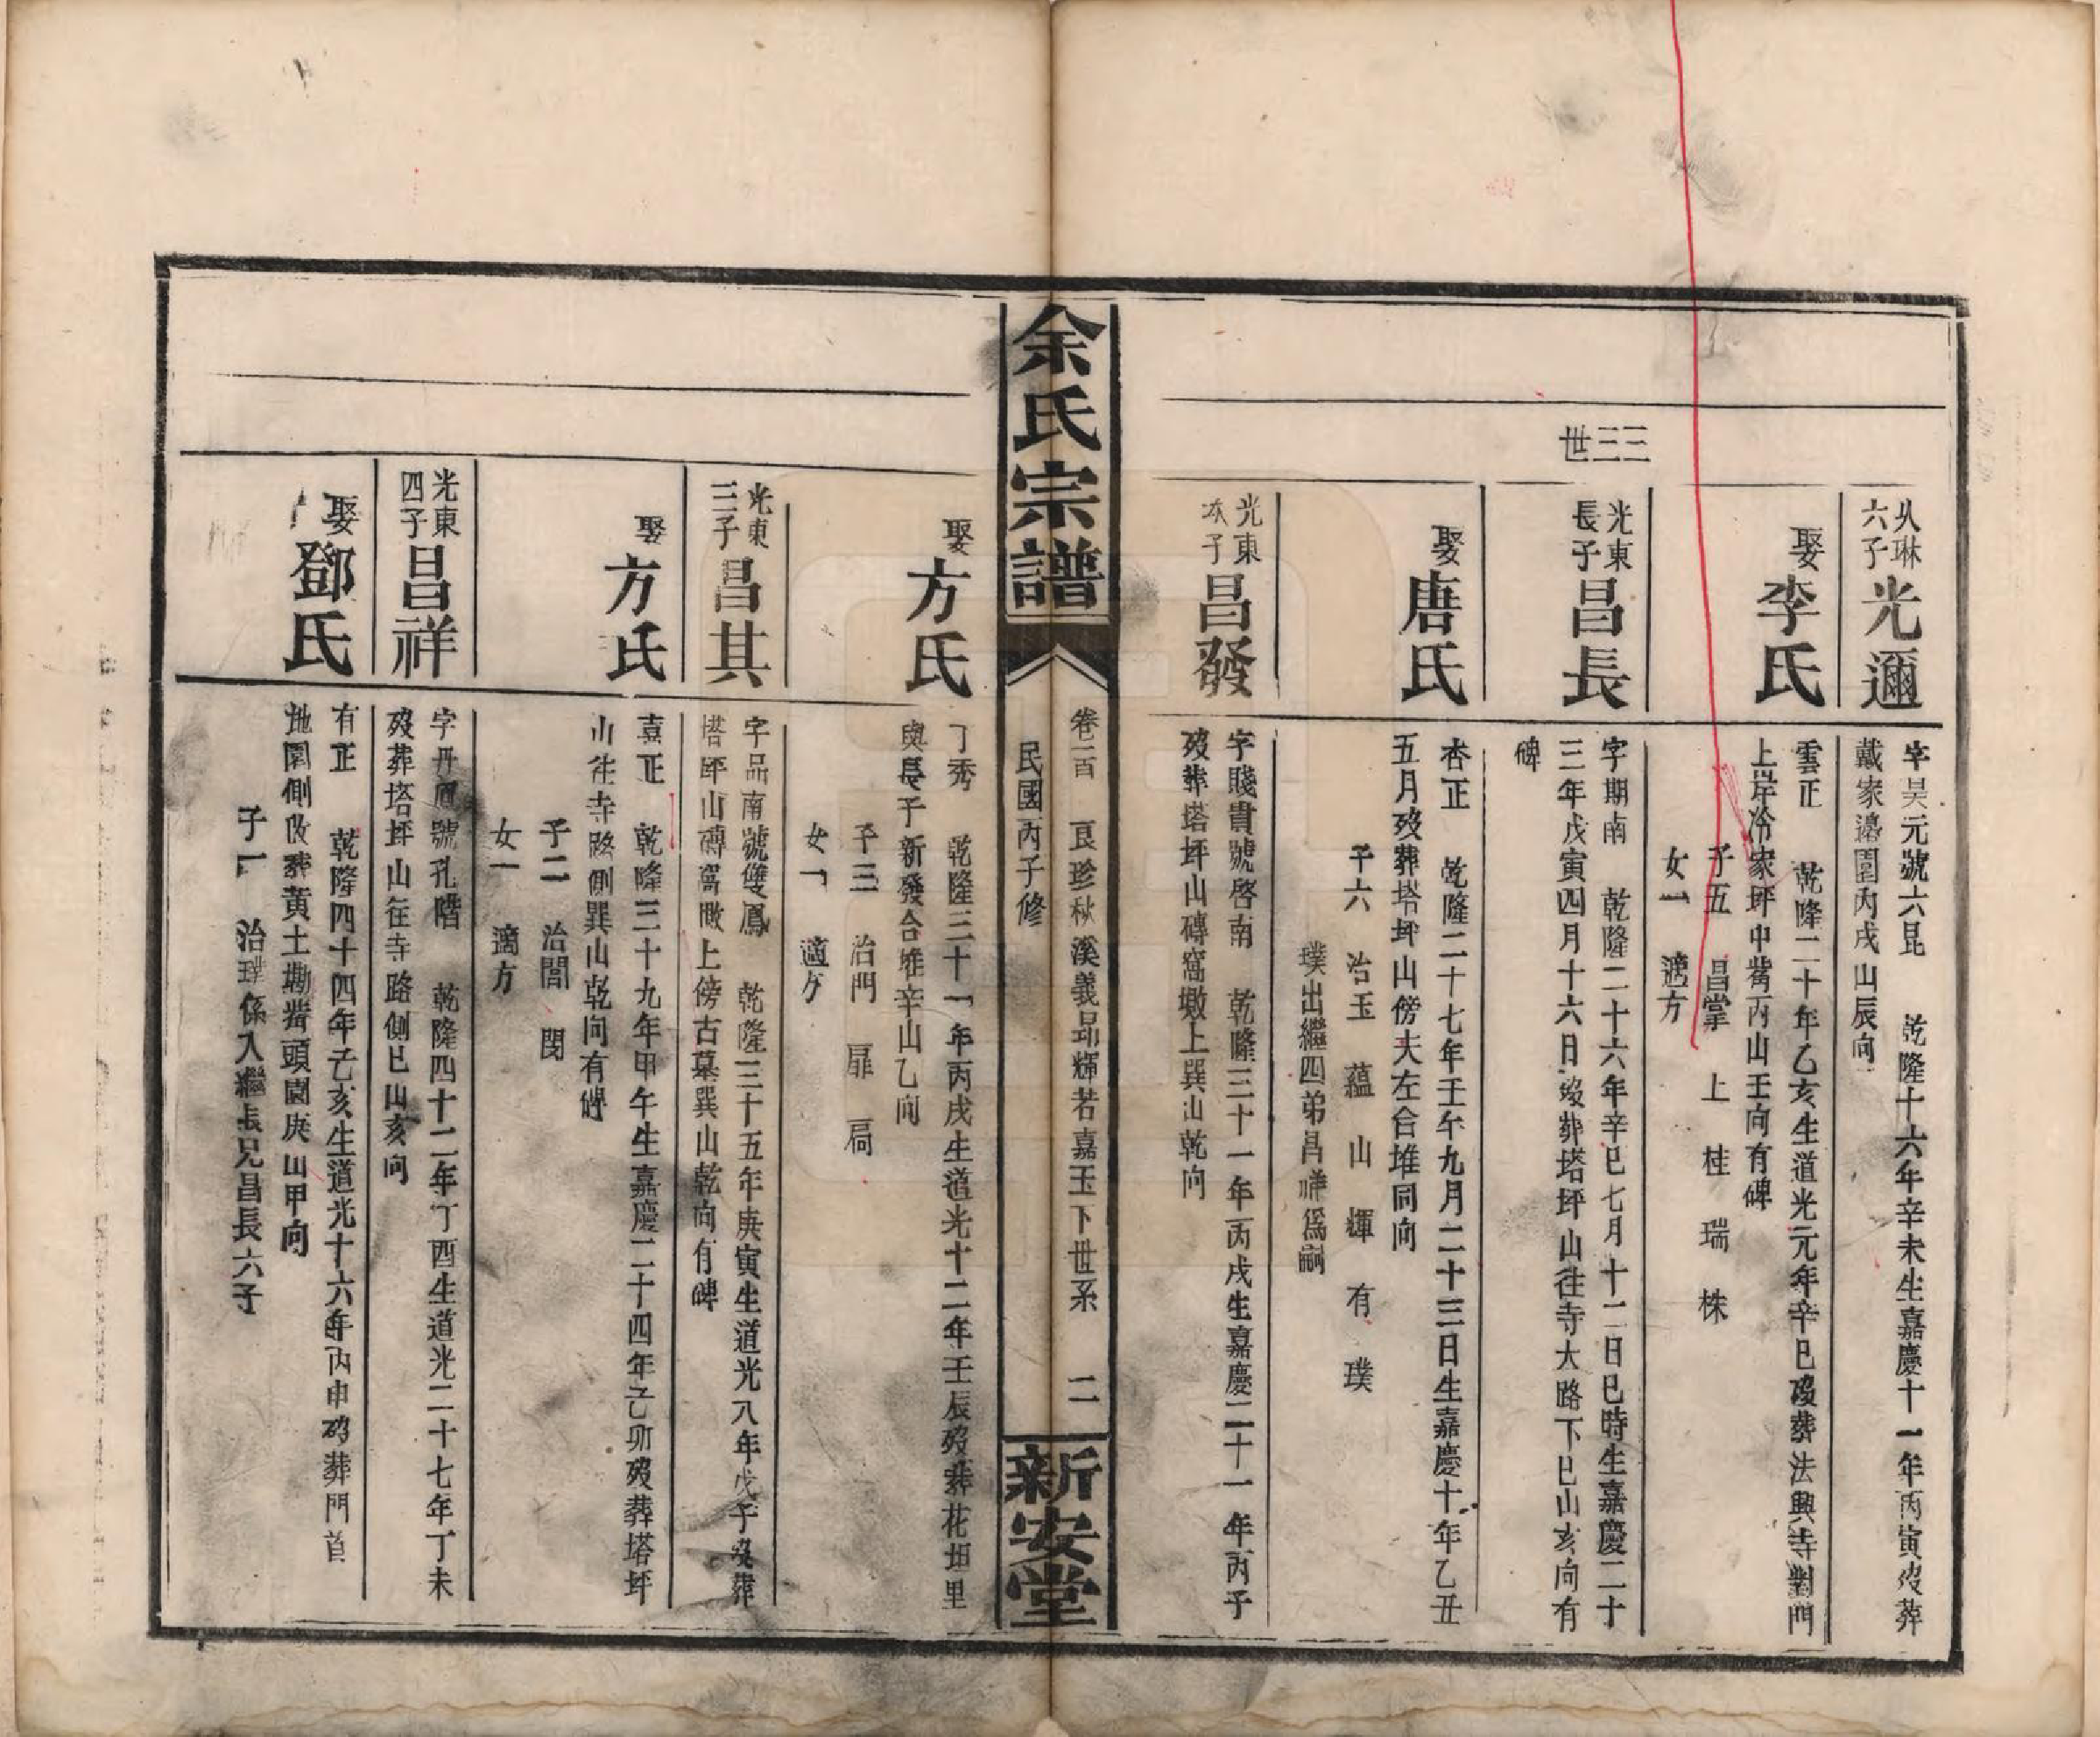 三三世
六子
光邇
字昊元號六昆 乾隆十六年辛未生嘉慶十一年丙寅歿葬
戴家邊園丙戌山辰向
娶李氏
雲正 乾隆二十年乙亥生道光元年辛巳歿葬法興寺對門
上岸冷家坪中嘴丙山壬向有碑
子五 昌掌 上 桂 瑞 株
女一 適方
光東
長子
昌長
字期南 乾隆二十六年辛巳七月十二日巳時生嘉慶二十
三年戊寅四月十六日歿葬塔坪山往寺大路下巳山亥向有
碑
娶唐氏
杏正 乾隆二十七年壬午九月二十三日生嘉慶十年乙丑
五月歿葬塔坪山傍夫左合堆同向
子六 治玉 蘊 山 輝 有 璞
璞出繼四弟昌祥為嗣
光東
次子
昌發
字賤貴號啓南 乾隆三十一年丙戌生嘉慶二十一年丙子
歿葬塔坪山磚窩墩上巽山乾向
余氏宗譜
卷二百 良珍秋溪義昂輝若嘉玉下世系 二
民國丙子修
新安堂
娶方氏
丁秀 乾隆三十一年丙戌生道光十二年壬辰歿葬花坦里
與長子新發合堆辛山乙向
子三 治門 扉 扃
女一 適方
光東
三子
昌其
字品南號雙鳳 乾隆三十五年庚寅生道光八年戊子歿葬
塔坪山磚窩墩上傍古墓巽山乾向有碑
娶方氏
喜正 乾隆三十九年甲午生嘉慶二十四年己卯歿葬塔坪
山往寺路側巽山乾向有碑
子二 治閭 閔
女一 適方
光東
四子
昌祥
字丹鳳號孔階 乾隆四十二年丁酉生道光二十七年丁未
歿葬塔坪山往寺路側巳山亥向
娶鄧氏
有正 乾隆四十四年乙亥生道光十六年丙申歿葬門首
地園側改葬黄土墈嘴頭園庚山甲向
子一 治璞係入繼長兄昌長六子